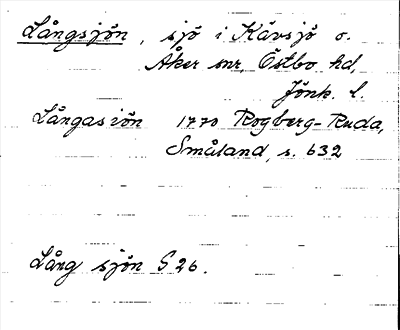 Långsjön, sjö i Kävsjö o.
Åker snr, Östbo hd,
Jönk. l.
Långasiön 1770 Rogberg-Ruda,
Småland, s. 632
Lång sjön S 26.